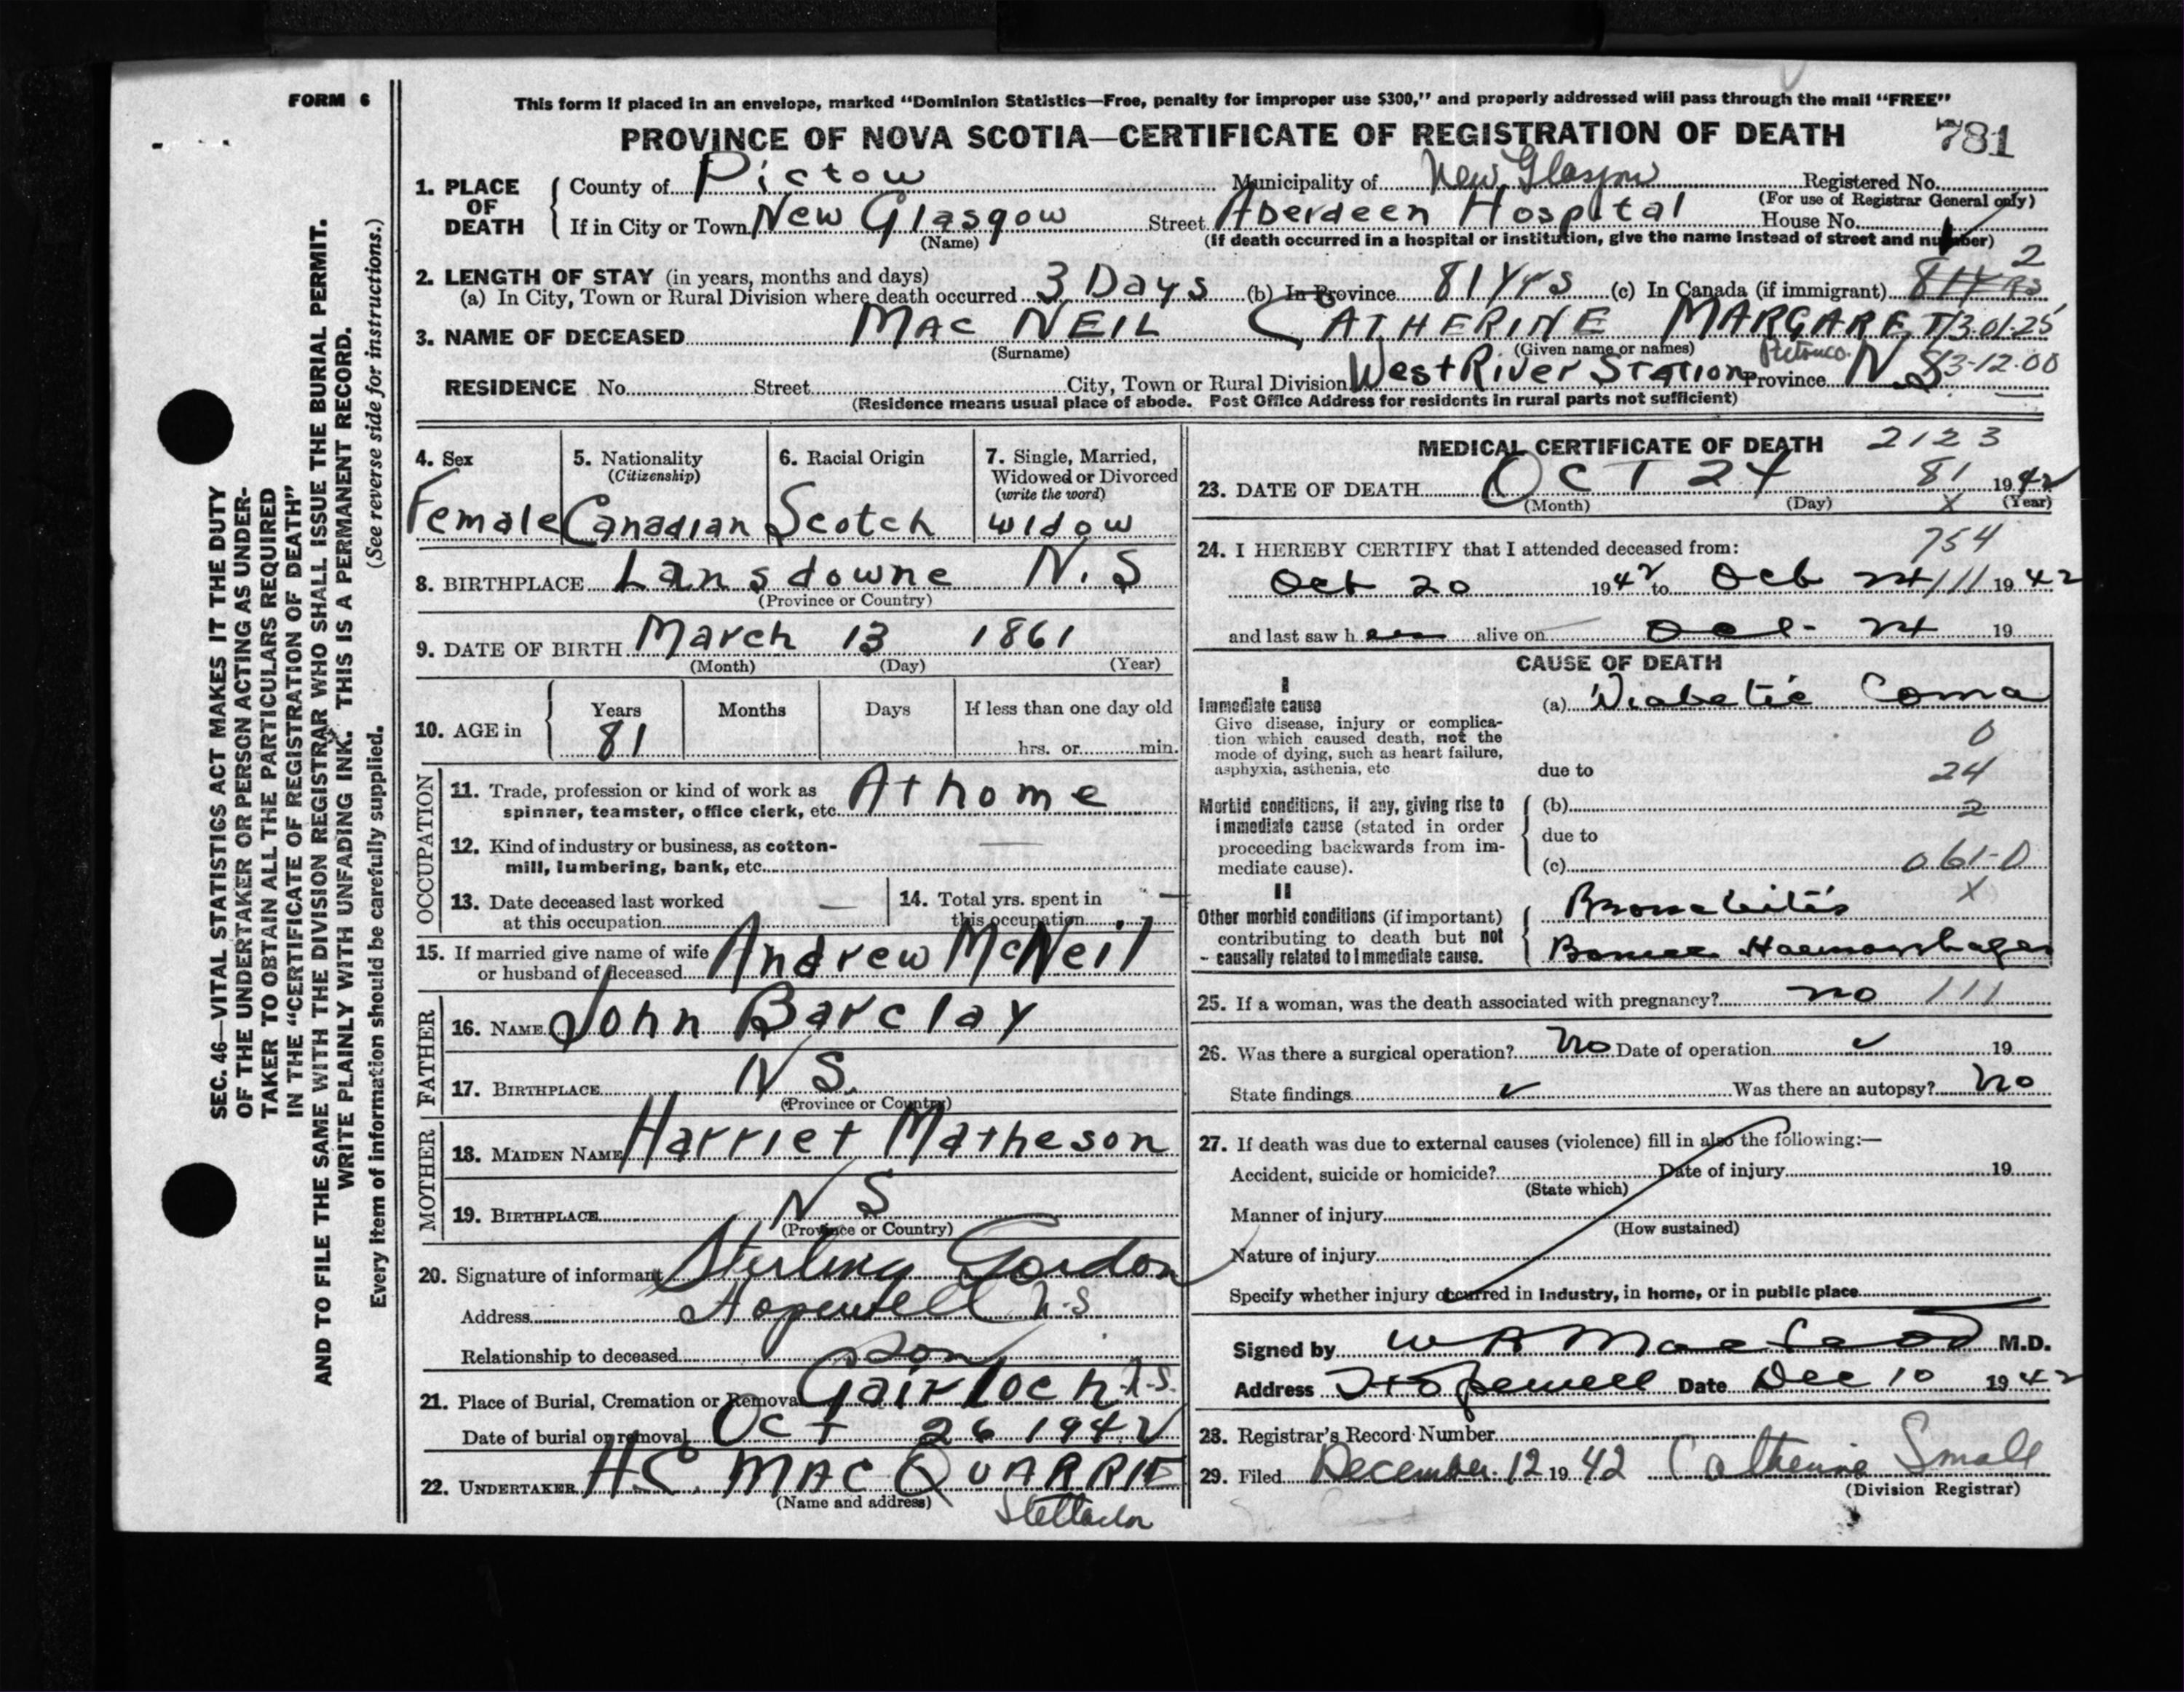 FORM 6
This form if placed in an envelope, marked "Dominion Statistics—Free, penalty for improper use $300," and properly addressed will pass through the mail "FREE"
PROVINCE OF NOVA SCOTIA—CERTIFICATE OF REGISTRATION OF DEATH 781
1. PLACE OF DEATH County of Pictou Municipality of New Glasgow Registered No.
(For use of Registrar General only)
If in City or Town New Glasgow Street Aberdeen Hospital House No.
(Name) (If death occurred in a hospital or institution, give the name instead of street and number)
2. LENGTH OF STAY (in years, months and days) 2
(a) In City, Town or Rural Division where death occurred 3 Days (b) In Province 81 Yrs (c) In Canada (if immigrant) 81 YRS
3. NAME OF DECEASED MAC NEIL CATHERINE MARGARET 13.01.25
(Surname) (Given name or names)
RESIDENCE No. Street City, Town or Rural Division West River Station Pictou Co. Province N.S 13-12.00
(Residence means usual place of abode. Post Office Address for residents in rural parts not sufficient)
4. Sex 5. Nationality (Citizenship) 6. Racial Origin 7. Single, Married, Widowed or Divorced (write the word)
Female Canadian Scotch Widow
8. BIRTHPLACE Lansdowne N.S
(Province or Country)
9. DATE OF BIRTH March 13 1861
(Month) (Day) (Year)
10. AGE in Years Months Days If less than one day old
81 hrs. or min.
OCCUPATION
11. Trade, profession or kind of work as spinner, teamster, office clerk, etc. At home
12. Kind of industry or business, as cotton-mill, lumbering, bank, etc. —
13. Date deceased last worked at this occupation — 14. Total yrs. spent in this occupation —
15. If married give name of wife or husband of deceased Andrew McNeil
FATHER
16. NAME John Barclay
17. BIRTHPLACE N S.
(Province or Country)
MOTHER
18. MAIDEN NAME Harriet Matheson
19. BIRTHPLACE N S
(Province or Country)
20. Signature of informant Sterling Gordon
Address Hopewell N.S
Relationship to deceased Son
21. Place of Burial, Cremation or Removal Gairloch N.S.
Date of burial or removal Oct 26 1942
22. UNDERTAKER H.C. MAC QUARRIE
(Name and address) Stellarton
MEDICAL CERTIFICATE OF DEATH 2123
23. DATE OF DEATH OCT 24 81 1942
(Month) (Day) X (Year)
24. I HEREBY CERTIFY that I attended deceased from: 754
Oct 20 1942 to Oct 24 111 1942
and last saw her alive on Oct- 24 19
CAUSE OF DEATH
I
Immediate cause (a) Diabetic Coma
Give disease, injury or complica-
tion which caused death, not the 0
mode of dying, such as heart failure,
asphyxia, asthenia, etc due to 24
Morbid conditions, if any, giving rise to (b) 2
immediate cause (stated in order due to
proceeding backwards from im-
mediate cause). (c) 061-0
II
Other morbid conditions (if important) Bronchitis X
contributing to death but not
causally related to immediate cause. Haemorrhages
25. If a woman, was the death associated with pregnancy? no 111
26. Was there a surgical operation? No Date of operation 19
State findings Was there an autopsy? No
27. If death was due to external causes (violence) fill in also the following:—
Accident, suicide or homicide? Date of injury 19
(State which)
Manner of injury
(How sustained)
Nature of injury
Specify whether injury occurred in industry, in home, or in public place
Signed by W A MacLeod M.D.
Address Hopewell Date Dec 10 1942
28. Registrar's Record Number
29. Filed December 12 1942 Catherine Small
(Division Registrar)
SEC. 46—VITAL STATISTICS ACT MAKES IT THE DUTY
OF THE UNDERTAKER OR PERSON ACTING AS UNDER-
TAKER TO OBTAIN ALL THE PARTICULARS REQUIRED
IN THE "CERTIFICATE OF REGISTRATION OF DEATH"
AND TO FILE THE SAME WITH THE DIVISION REGISTRAR WHO SHALL ISSUE THE BURIAL PERMIT.
WRITE PLAINLY WITH UNFADING INK. THIS IS A PERMANENT RECORD.
Every item of information should be carefully supplied. (See reverse side for instructions.)